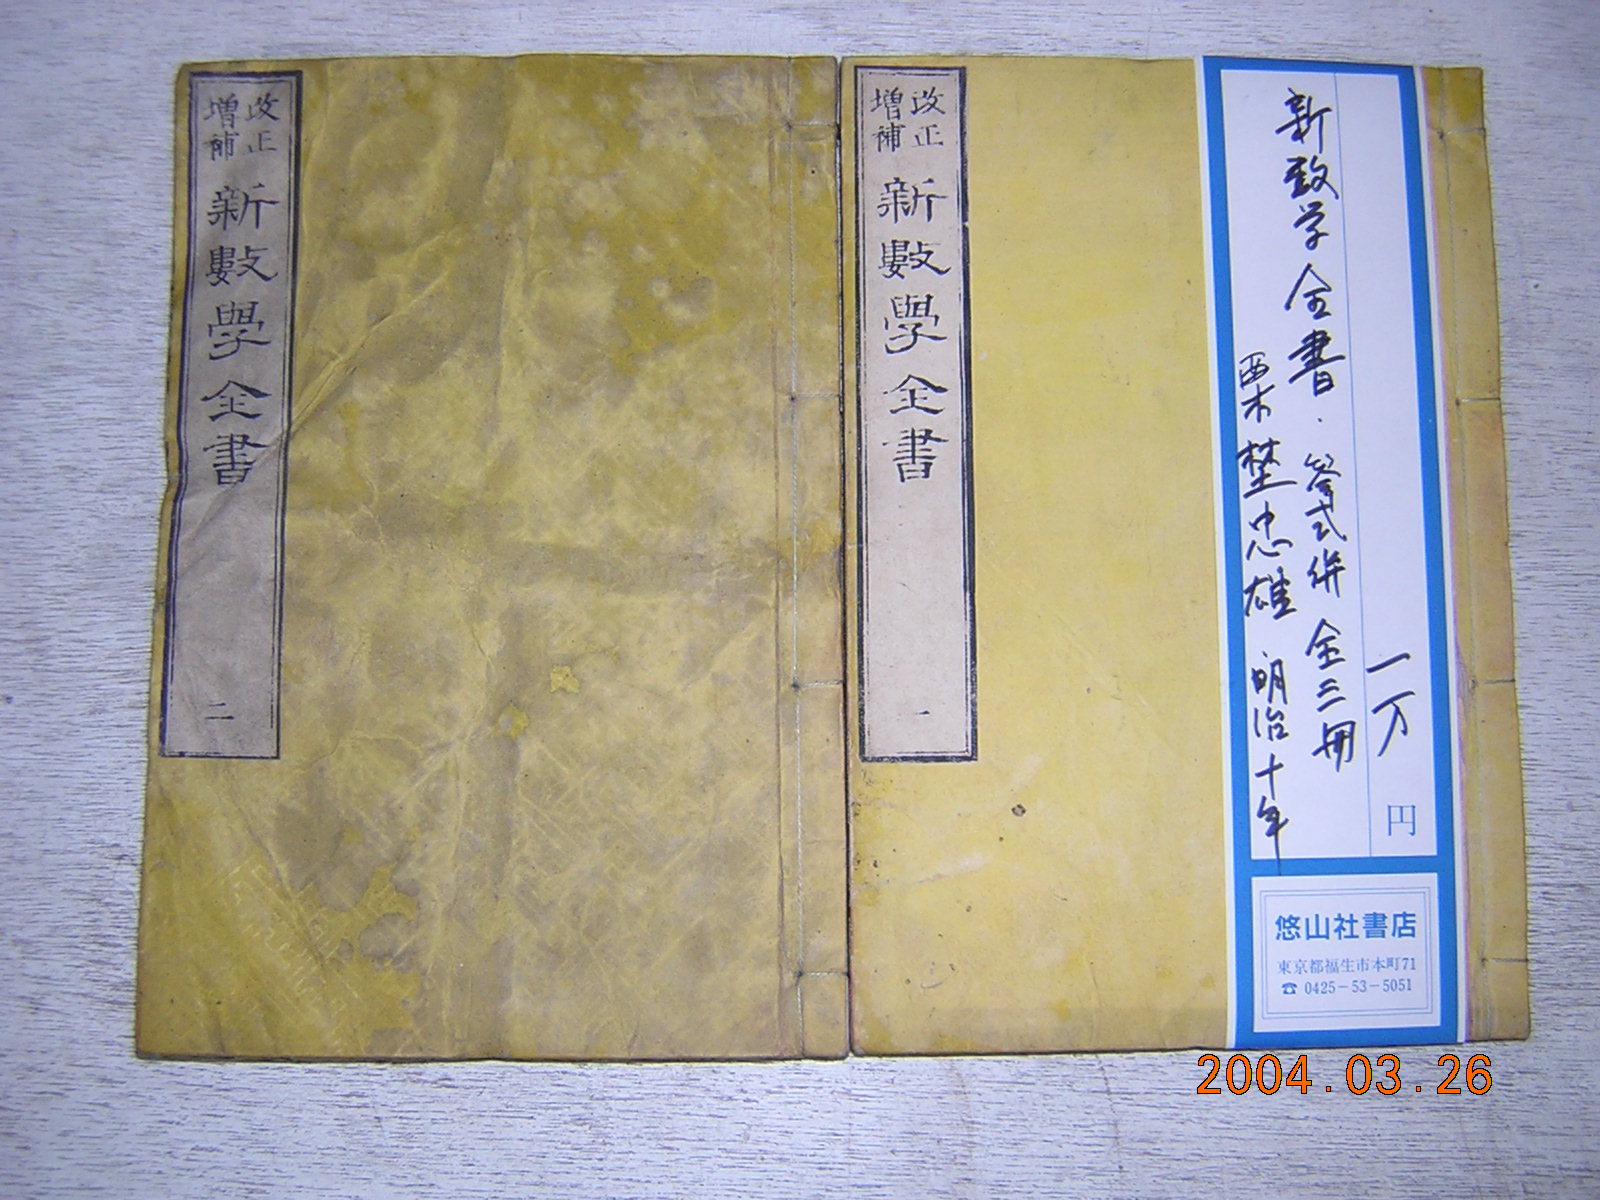 改正
増補
新數學全書
二
改正
増補
新數學全書
一
一万円
新数学全書・答式併 全三冊
栗埜忠雄 明治十年
悠山社書店
東京都福生市本町71
☎ 0425-53-5051
2004.03.26